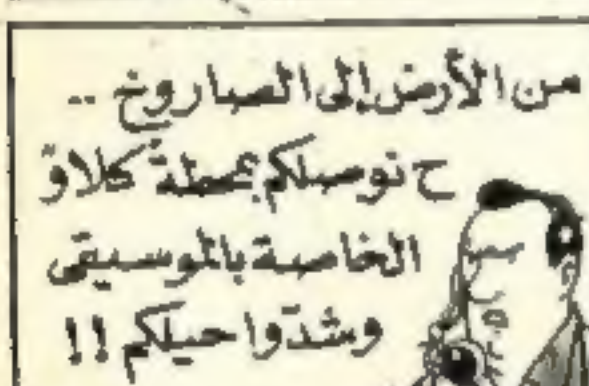 من الأرض إلى الصاروخ ..
ح نوصلكم بمحطة كلاوْ
الخاصة بالموسيقى
وشدّوا حيلكم !!